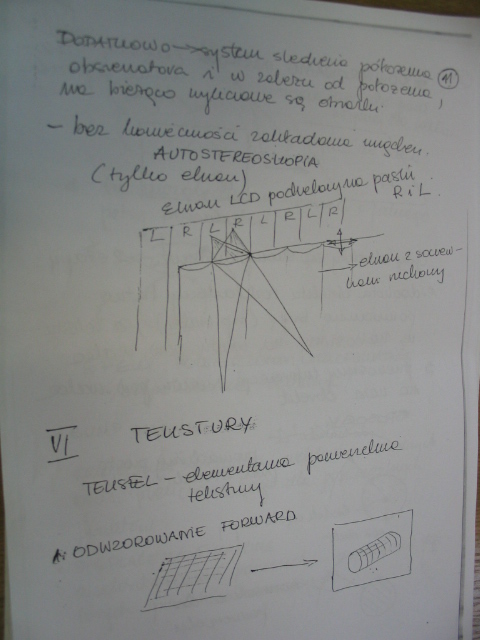 DODATKOWO → system śledzenia położenia 41
obserwatora i w zależn. od położenia,
na bieżąco wyliczane są obrazki.
- bez konieczności zakładania urządzeń.
AUTOSTEREOSKOPIA
(tylko ekran)
Ekran LCD podzielony na paski
R i L.
L R L R L R L R
ekran z soczew-
kami ruchomy
VI TEKSTURY
TEKSEL - elementarna powierzchnia
tekstury
A. ODWZOROWANIE FORWARD